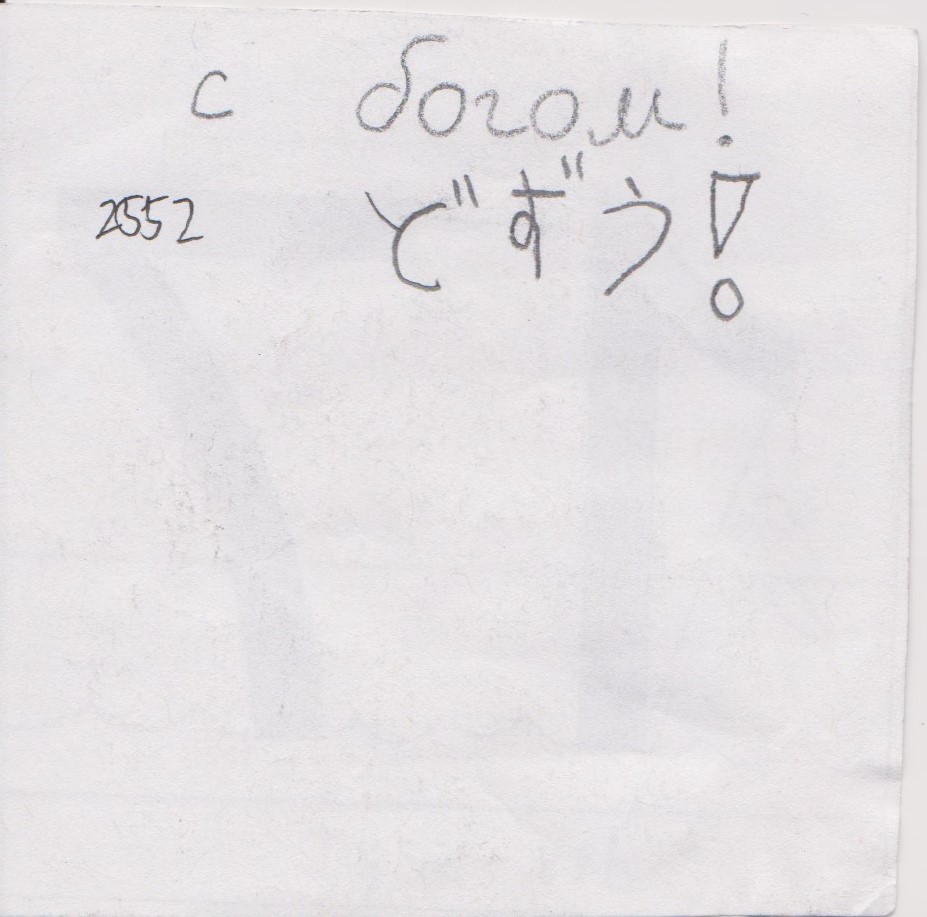 с богом!
2552 どずう!